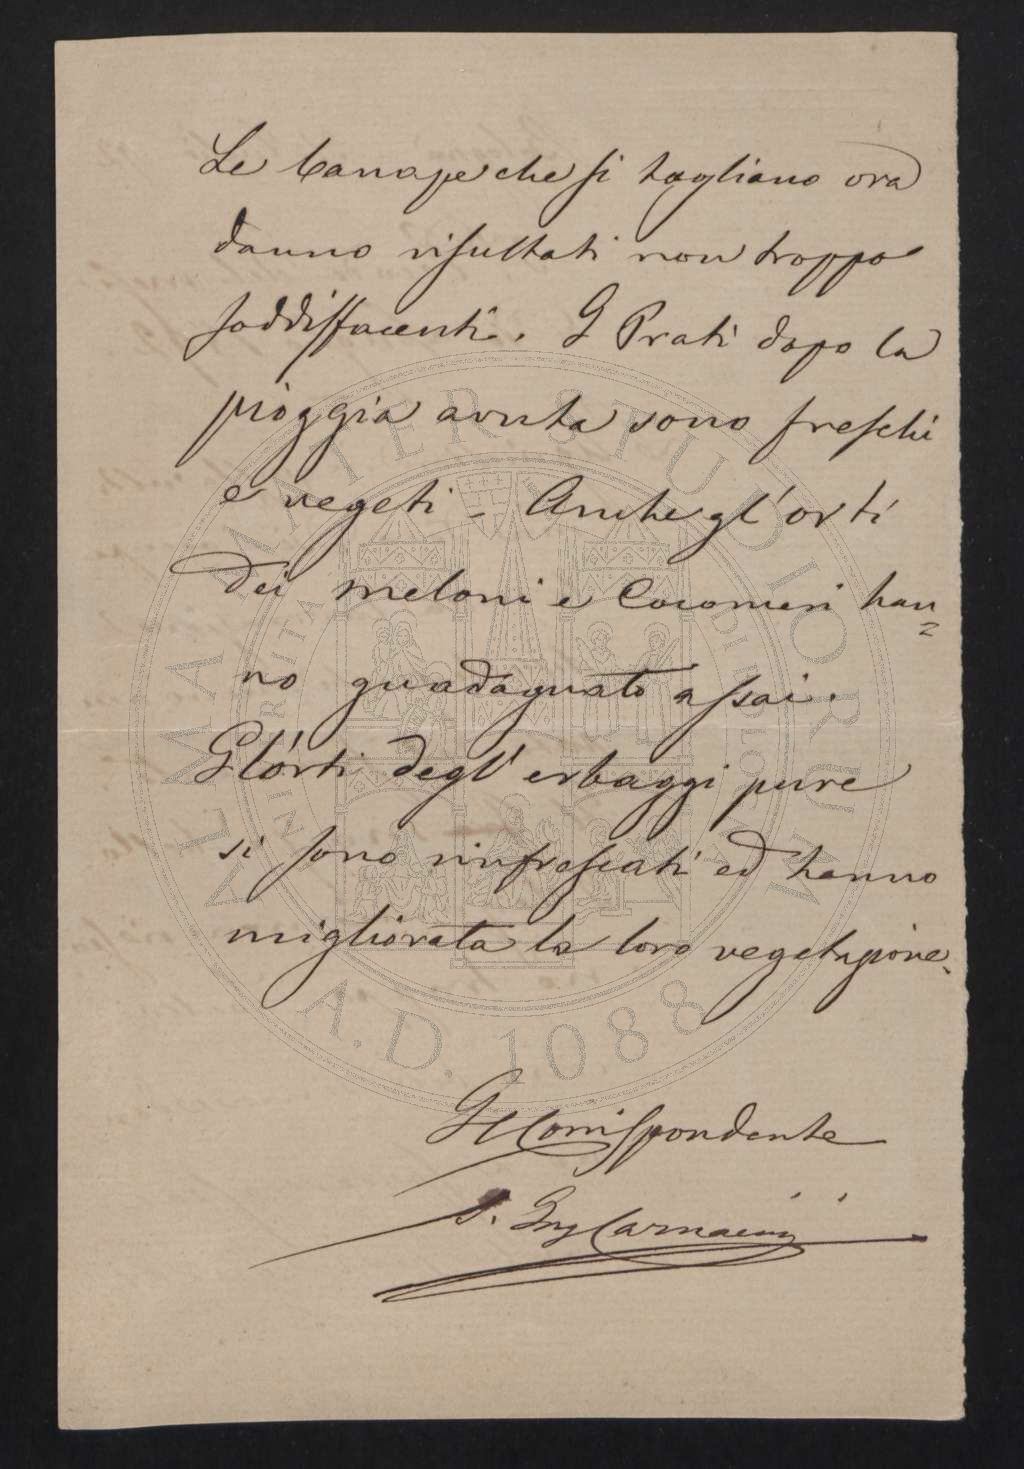 Le Canape che si tagliano ora
danno risultati non troppo
soddisfacenti. I Prati dopo la
pioggia avuta sono freschi
e vegeti - Anche gl'orti
dei meloni e Cocomeri han=
no guadagnato assai.
Gl'orti degl'erbaggi pure
si sono rinfrescati ed hanno
migliorata la loro vegetazione.
Il Corrispondente
Ing Carnacini
ALMA MATER STUDIORUM
A.D. 1088